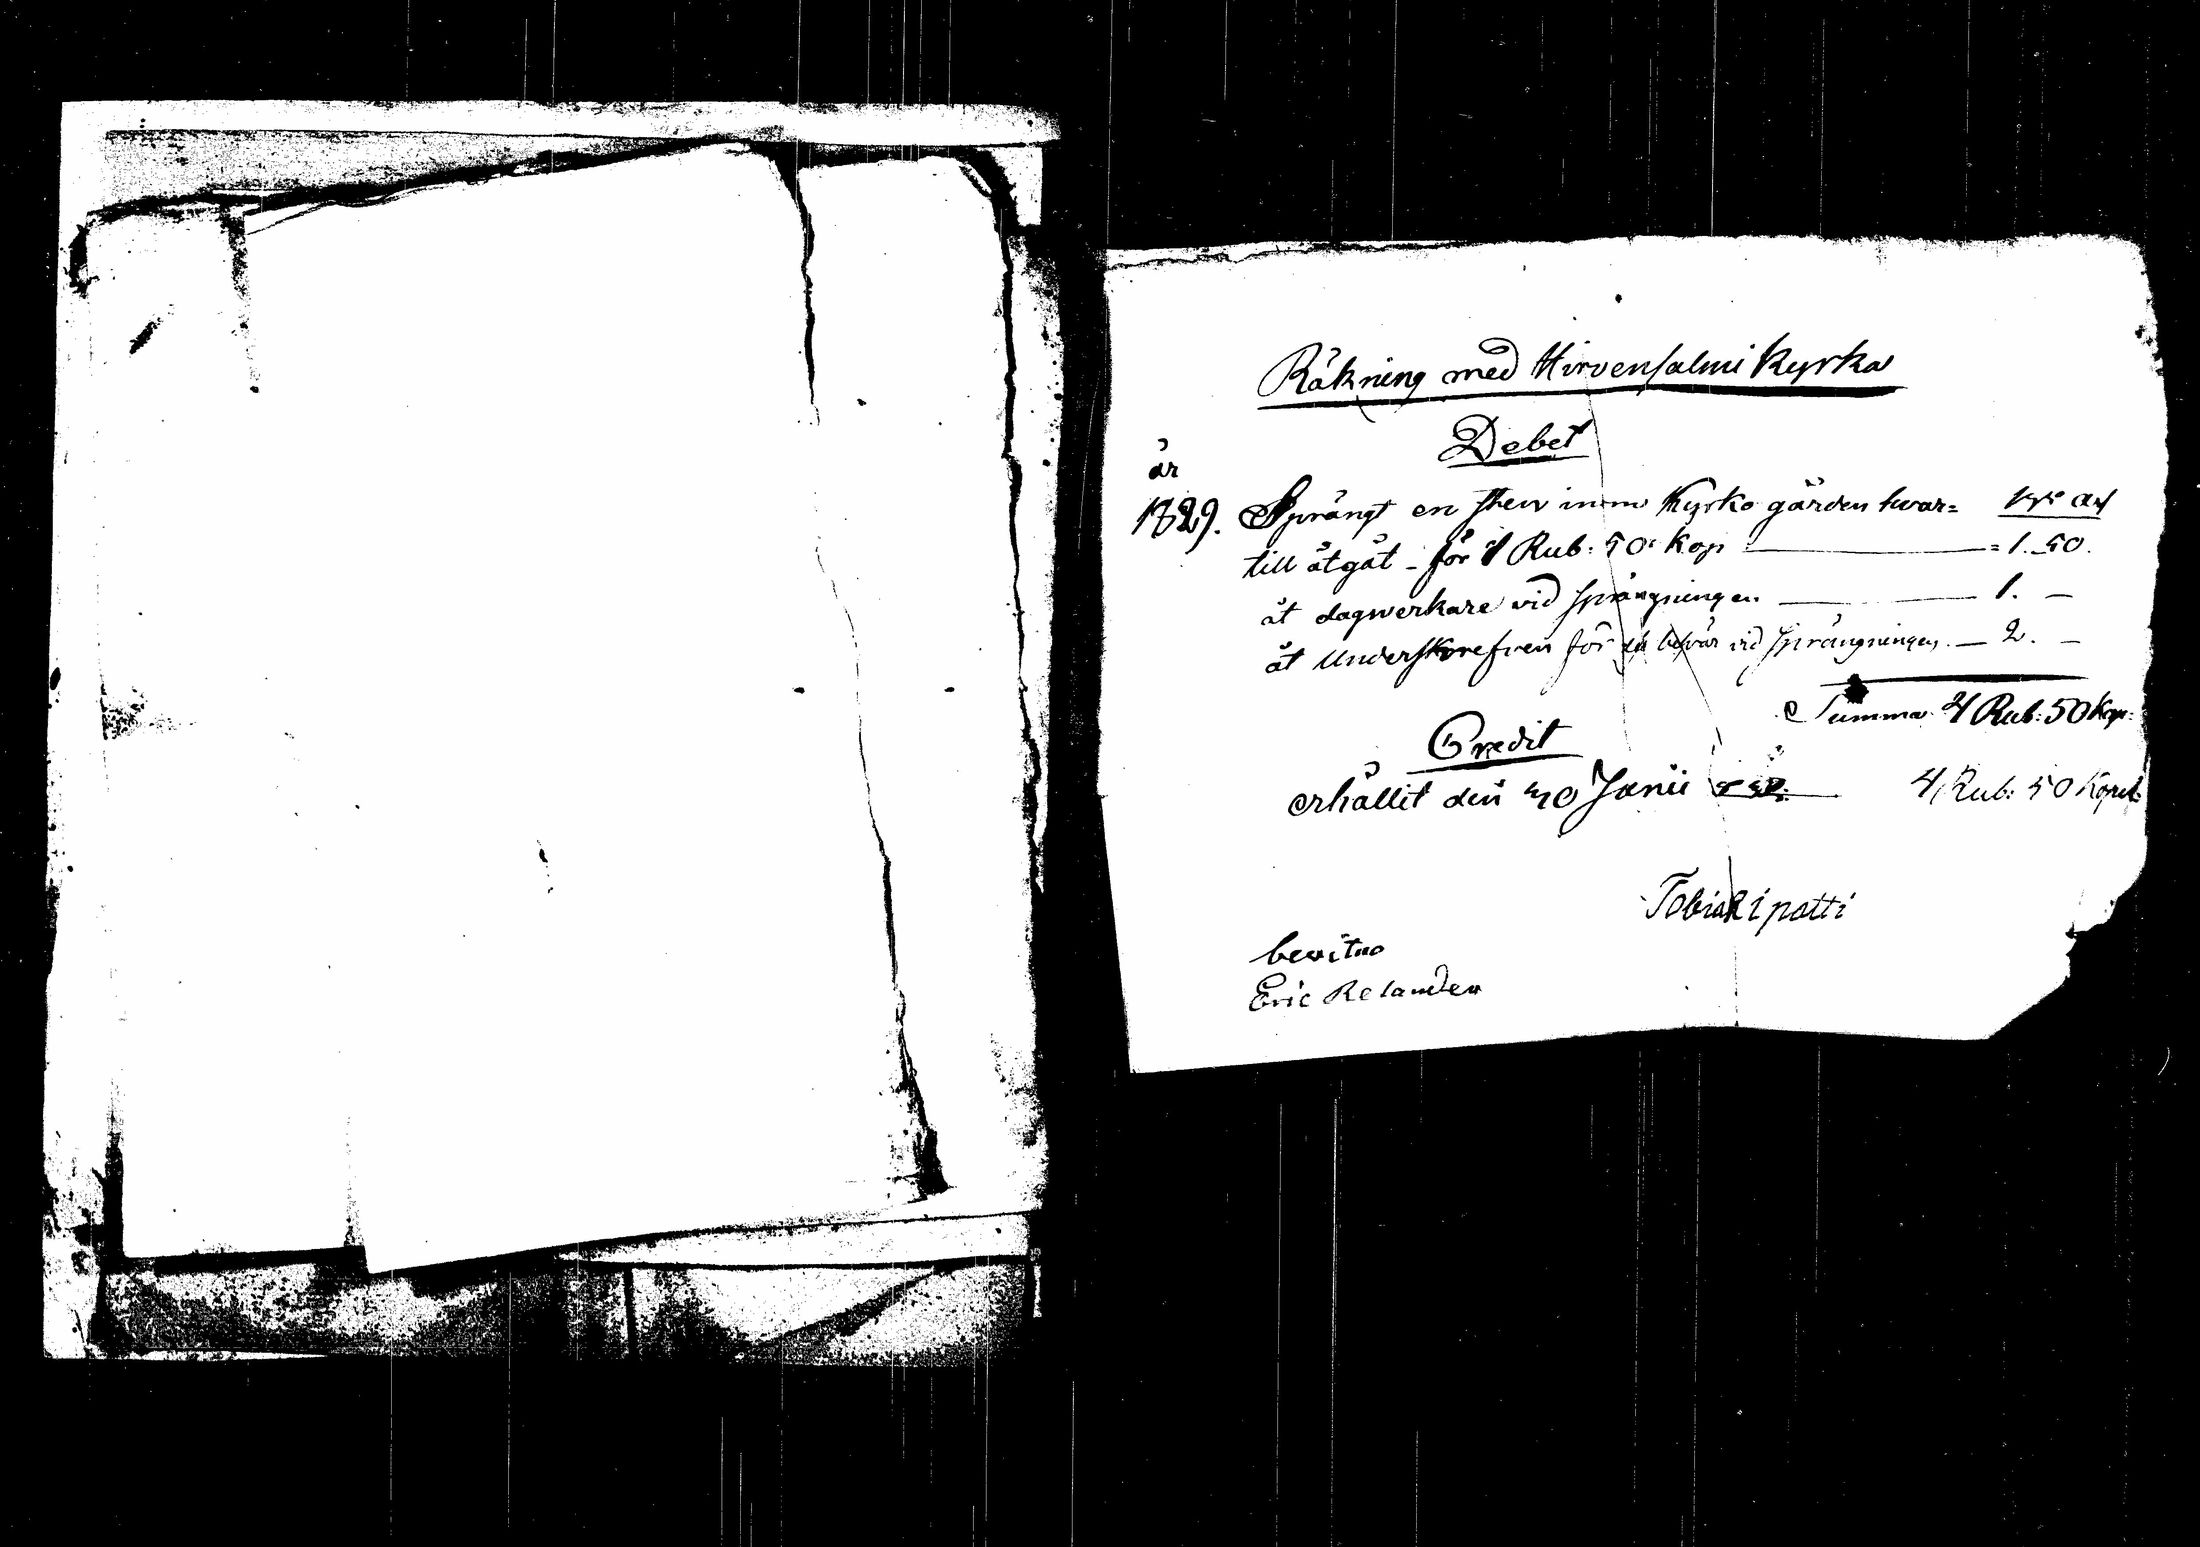 Räkning med Hirvensalmi Kyrka
Debet
år
1829. Sprängt en sten innu Kyrko gården hvar=
till åtgåt - för 1 Rub: 50: Kop = 1. 50.
åt dagwerkare vid sprängningen 1. -
åt Underskrefven för besvär vid sprängningen. - 2. -
Summa 4 Rub: 50 Kop:
Credit
erhållit den 30 Junii 4 Rub: 50 Kopek:
Tobias Ripatti
bevitna
Eric Relander